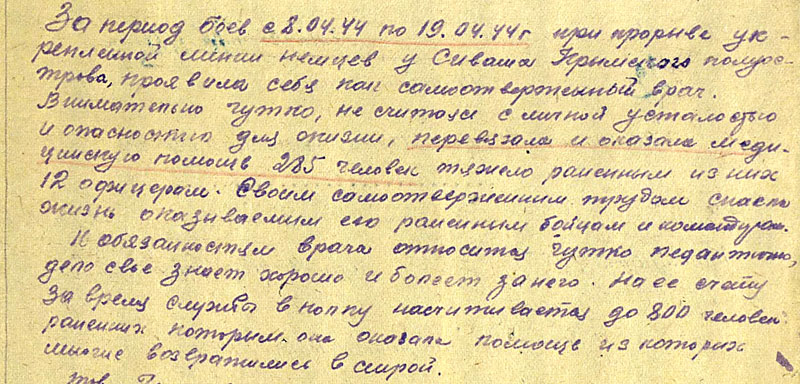 За период боев с 8.04.44 по 19.04.44г при прорыве ук-
репленной линии немцев у Сиваша Крымского полуос-
трова, проявила себя как самоотверженный врач.
Внимательно чутко, не считаяс с личной усталостью
и опасностью для жизни, перевязала и оказала меди-
цинскую помощь 285 человек тяжело раненым из них
12 офицерам. Своим самоотверженим трудом спасла
жизнь оказываемим ею раненным бойцам и командирам.
К обязанностям врача относится чутко педантично,
дело свое знает хорошо и болеет за него. На ее счету
за время службы в полку насчитывается до 800 человек
раненних которым она оказала помощь из которих
многие возвратились в строй.